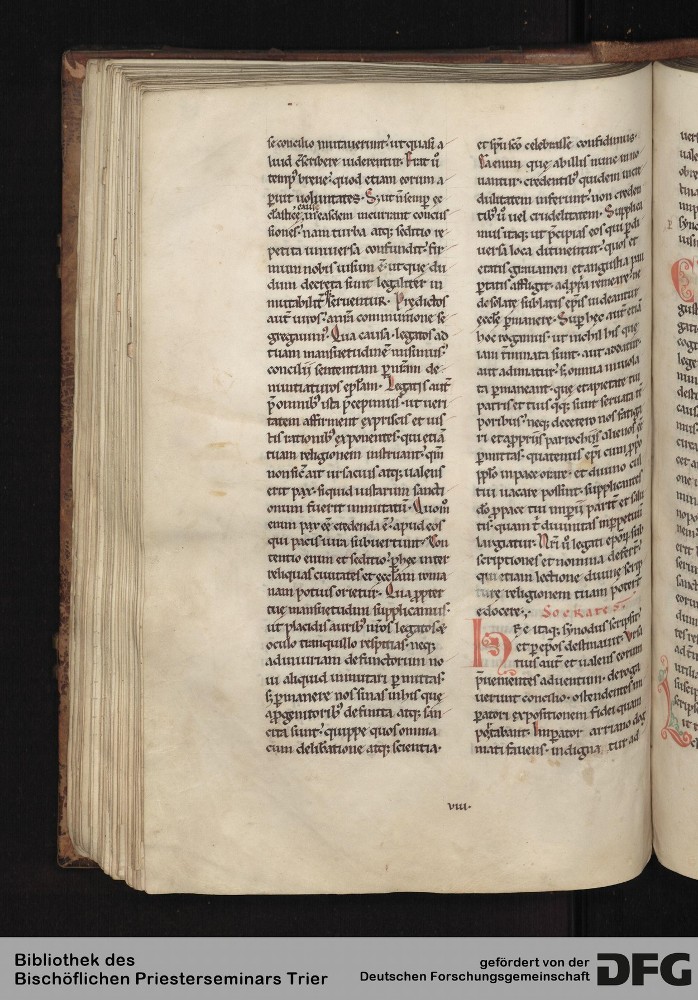 se concilio mutauerunt. ut quasi a
liud c̄scribere uiderentur. Fuit u̅
temp᷒ breue. quod etiam eorum a
peruit uoluntates. Sicut n̄ semp̲ ec
clastice cause in easdem incurrunt concus
siones. nam turba atq; seditio re
petita uniuersa confundit. fir
mum nobis uisum ē. ut que du
dum decreta sunt legalit̄ in
mutabilit̄ seruentur. Predictos
aut̄ uiros a n̄ra communione se
gregauim᷒. Qua causa legatos ad
tuam mansuetudinē misimus.
concilii sententiam p̲ n̄ram de
nuntiaturos ep̄lam. Legatis aut̄
p̄ omnib᷒ ista p̄cepimus. ut ueri
tatem affirment ex priscis et ius
tis rationib᷒ exponentes. qui etiā
tuam religionem instruant. qm̄
non sic ait ursacius atq; ualens
erit pax. si quid iustarum sancti
onum fuerit inmutatū. Quom̊
enim pax eē credenda ē. apud eos
qui pacis iura subuertunt. Con
tentio enim et seditio p̲ hec inter
reliquas ciuitates et eccl̄am roma
nam potius orietur. Qua propter
tuę mansuetudini supplicamus.
ut placidis aurib᷒ n̄ros legatos &
oculo tranquillo respitias. neq;
ad iniuriam defunctorum no
ui aliquid inmutari p̲mittas.
s; p̲manere nos sinas in his que
a p̲genitorib᷒ definita atq; san
cita sunt. quippe quos omnia
cum deliberatione atq; scientia.
et sp̄u sc̄o celebrasse confidimus.
Ea enim que ab illis nunc inno
uantur. credentib᷒ quidem incre
dulitatem inferunt. non creden
tib᷒ u̅ uel crudelitatem. Supplica
mus itaq; ut p̄cipias eos qui p̲ di
uersa loca detinentur. quos et
etatis grauamen et angustia pau
pertatis affligit. ad p̲pria remeare. ne
desolate sublatis ep̄is uideantur
eccl̄e p̲manere. Super hec aut̄ etiā
hoc rogamus. ut nichil his que
iam t̄minata sunt. aut addatur
aut adimatur. s; omnia inuiola
ta p̲maneant. que ex pietate tui
patris et tuis q;q; sunt seruata tē
porib᷒. neq; decetero nos fatiga
ri et a propriis parrochiis alienos eē
p̲mittas. quatenus ep̄i cum p̲prio
pp̄lo in pace orare. et diuino cul
tui uacare possint. supplicantes
do̅ p̲ pace tui imp̲ii parit̄ et salu
tis. quam t̄ diuinitas in perpetuū
largiatur. N̄ri u̅ legati ep̄orum sub
scriptiones et nomina defert̄.
qui etiam lectione diuine scrip
ture religionem tuam poterit
edocere. Socrates.
Hec itaq; synodus scripsit.
et p̲ ep̄os destinauit. Ursa
tius aut̄ et ualens eorum
p̄uenientes aduentum. deroga
uerunt concilio. ostendentes im
peratori expositionem fidei quam
portabant. Imperator arriano dog
mati fauens. indignatur ad
viii.
Bibliothek des
Bischöflichen Priesterseminars Trier
gefördert von der
Deutschen Forschungsgemeinschaft
DFG